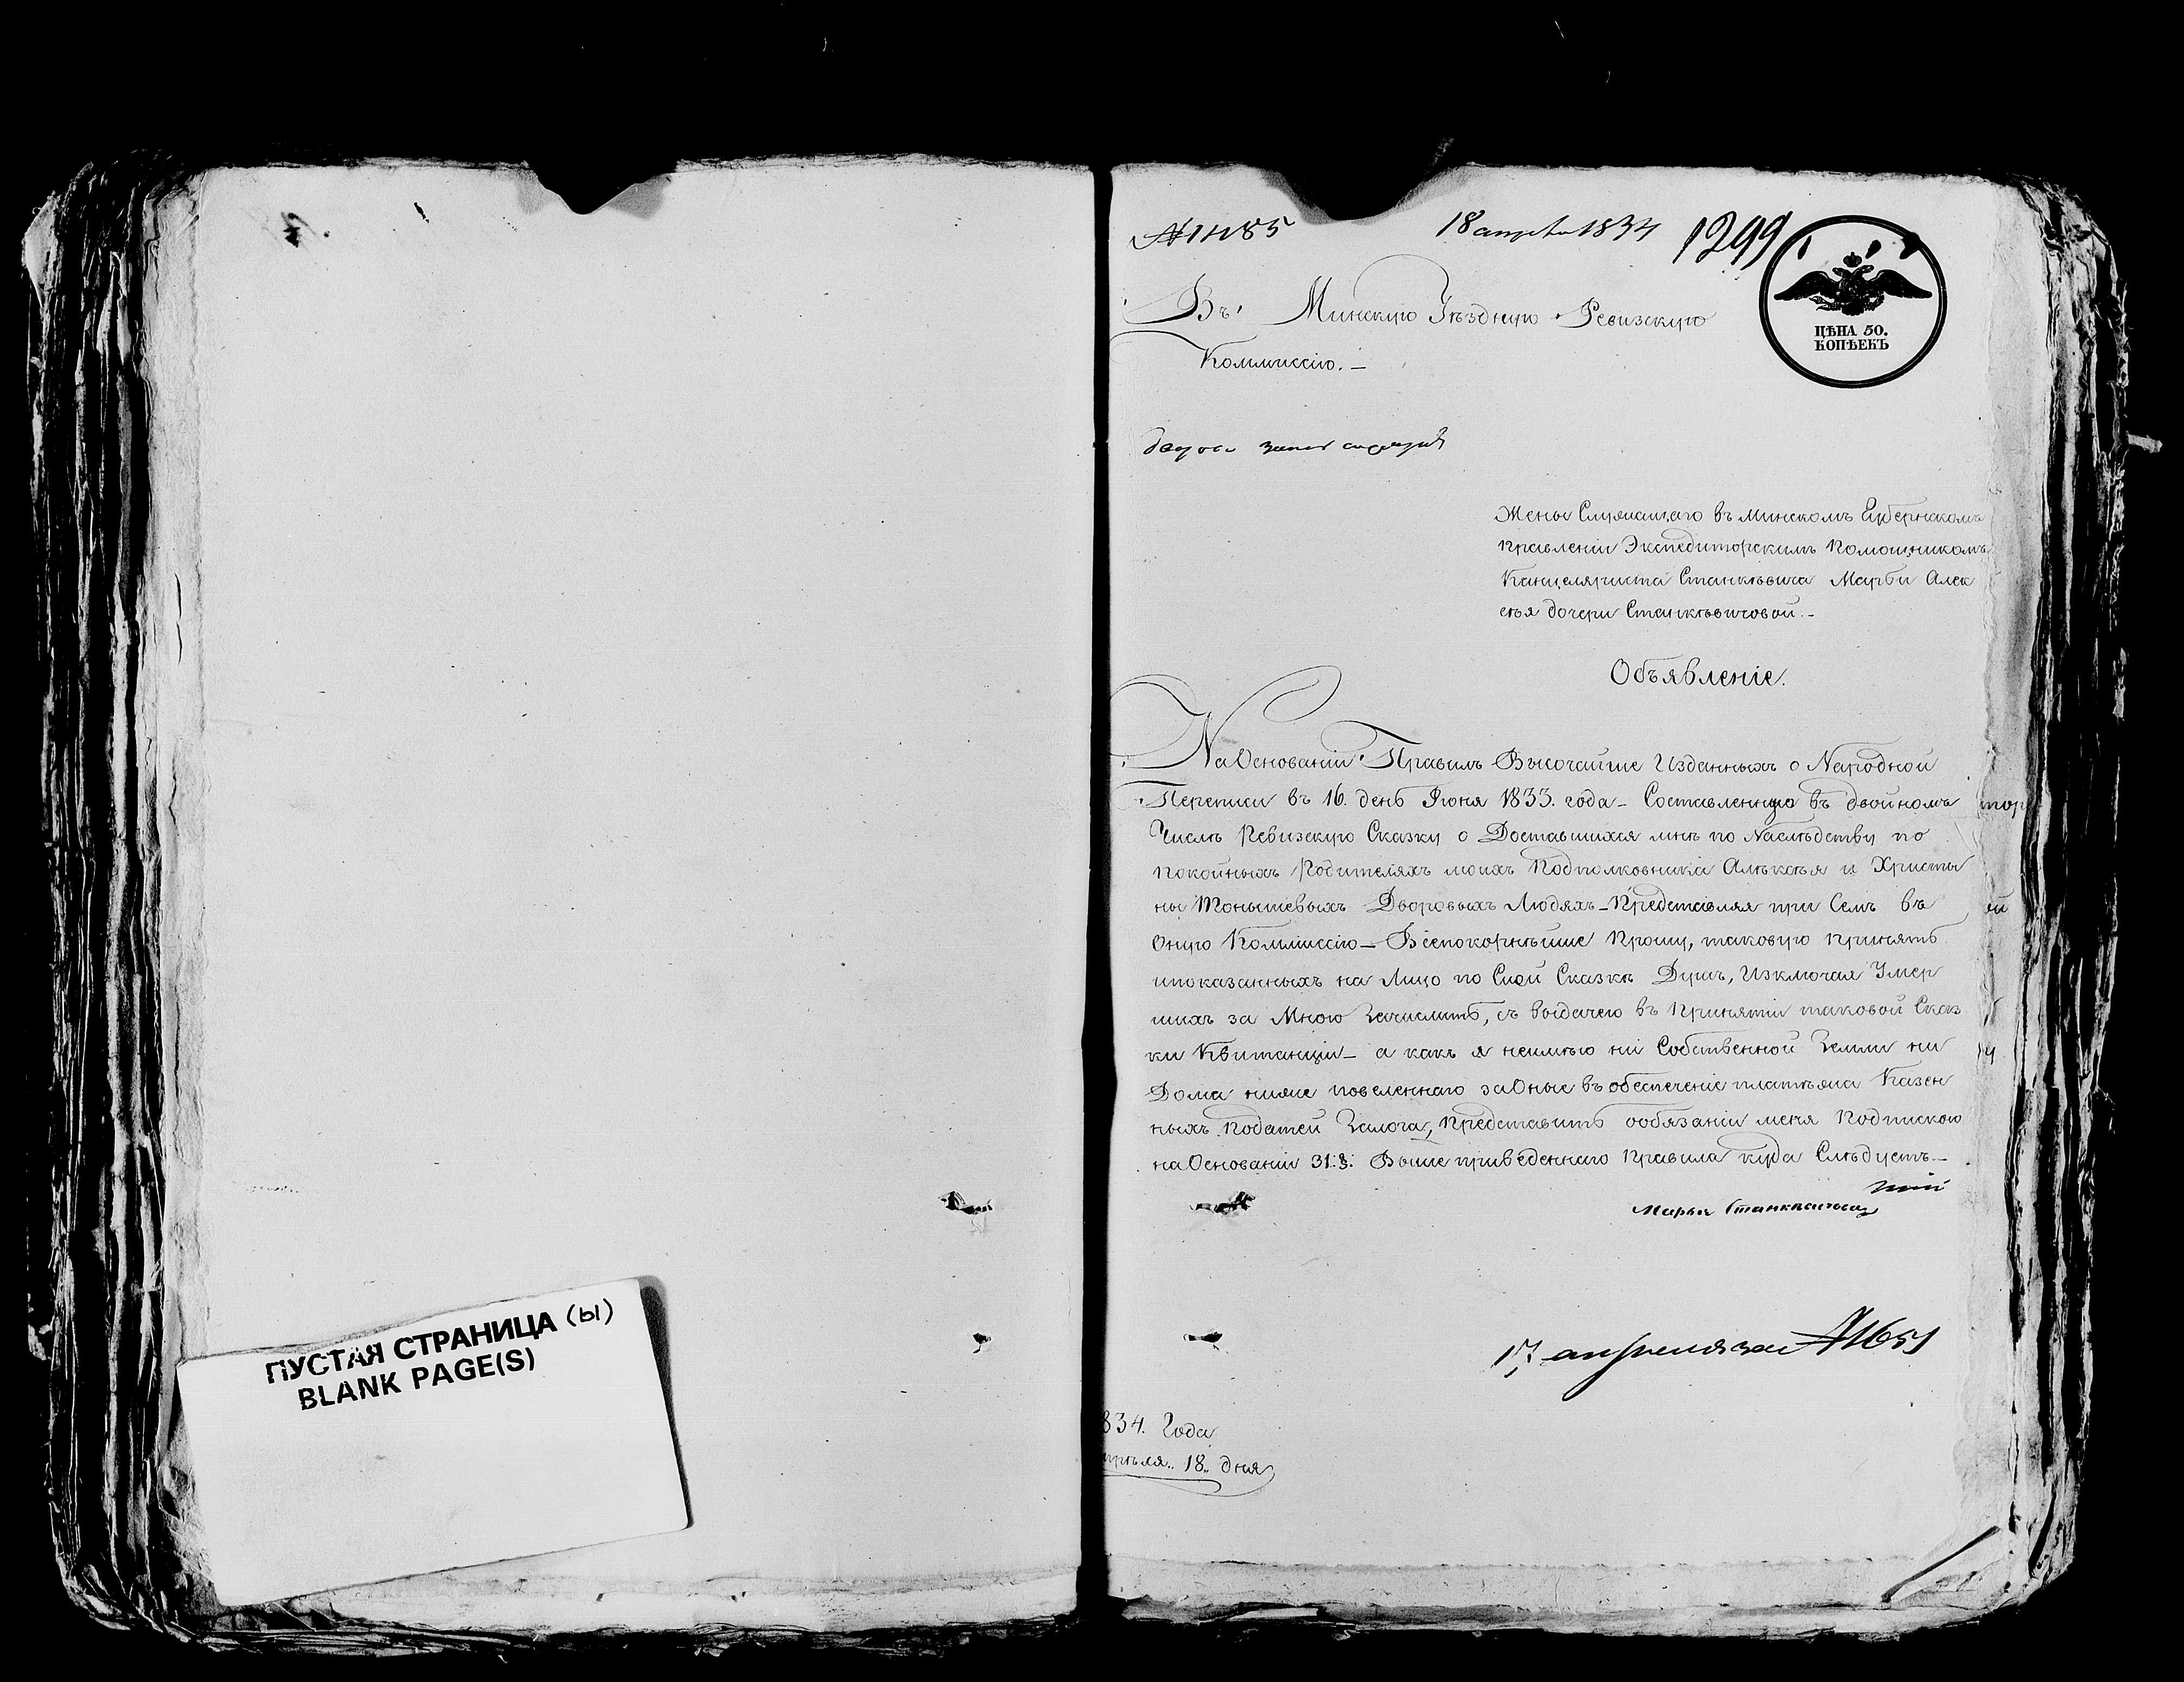 18 апреля 1834
1299
Въ Минскую Уѣздную Ревизскую
Коммиссію.—
ЦѢНА 50.
КОПѢЕКЪ
Жены Служащаго въ Минскомъ Губернскомъ
Правленіи Экспедиторскимъ Помощникомъ
Канцеляриста Станкѣвича Марьи Алек
сѣя дочери Станкѣвичовой.—
Объявленіе.
На Основаніи Правилъ Высочайше Изданныхъ о Народной
Переписи въ 16. день Іюня 1833. года— Составленную въ двойномъ
Числѣ Ревизскую Сказку о Доставшихся мнѣ по Наслѣдству по
покойныхъ Родителяхъ моихъ Подполковника Алѣксѣя и Христи
ны Дворовыхъ Людяхъ—Представляя при Семъ въ
Оную Коммиссію— Всепокорнѣйше Прошу, таковую принять
ипоказанныхъ на Лицо по Сей Сказкѣ Душъ, Изключая Умер
шихъ за Мною Зачислить, съ выдачею въ Принятіи таковой Сказ
ки Квитанціи— а какъ я неимѣю ни Собственной Земли ни
Дома ниже повеленнаго заОные въ обеспеченіе платѣжа Казен
ныхъ Податей Залога, Представить ообязаніи меня Подпискою
на Основаніи 31.§: Выше приведеннаго Правила куда Слѣдуетъ.—
Марья
17 апреля за № 1651
834. Года
прѣля.. 18.. дня
ПУСТАЯ СТРАНИЦА (Ы)
BLANK PAGE(S)